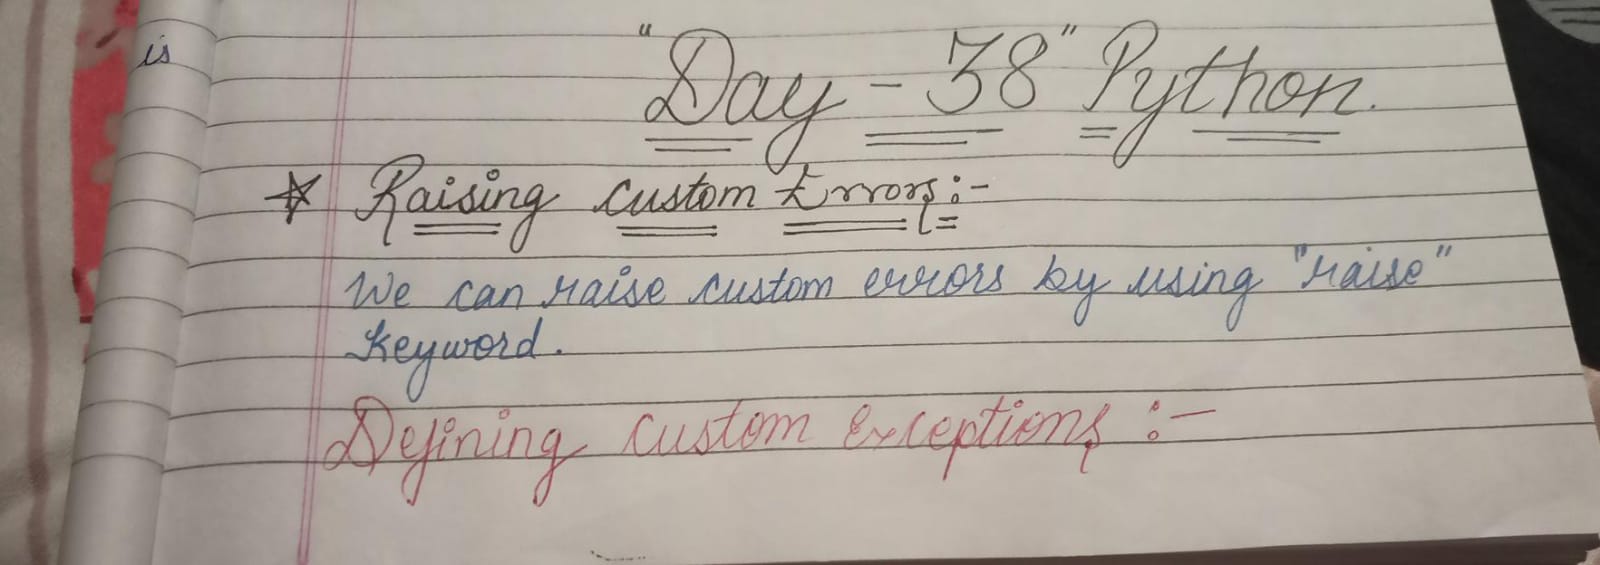 is
"Day - 38" Python.
☆ Raising custom Errors :-
We can raise custom errors by using "raise"
keyword.
Defining custom exceptions :-